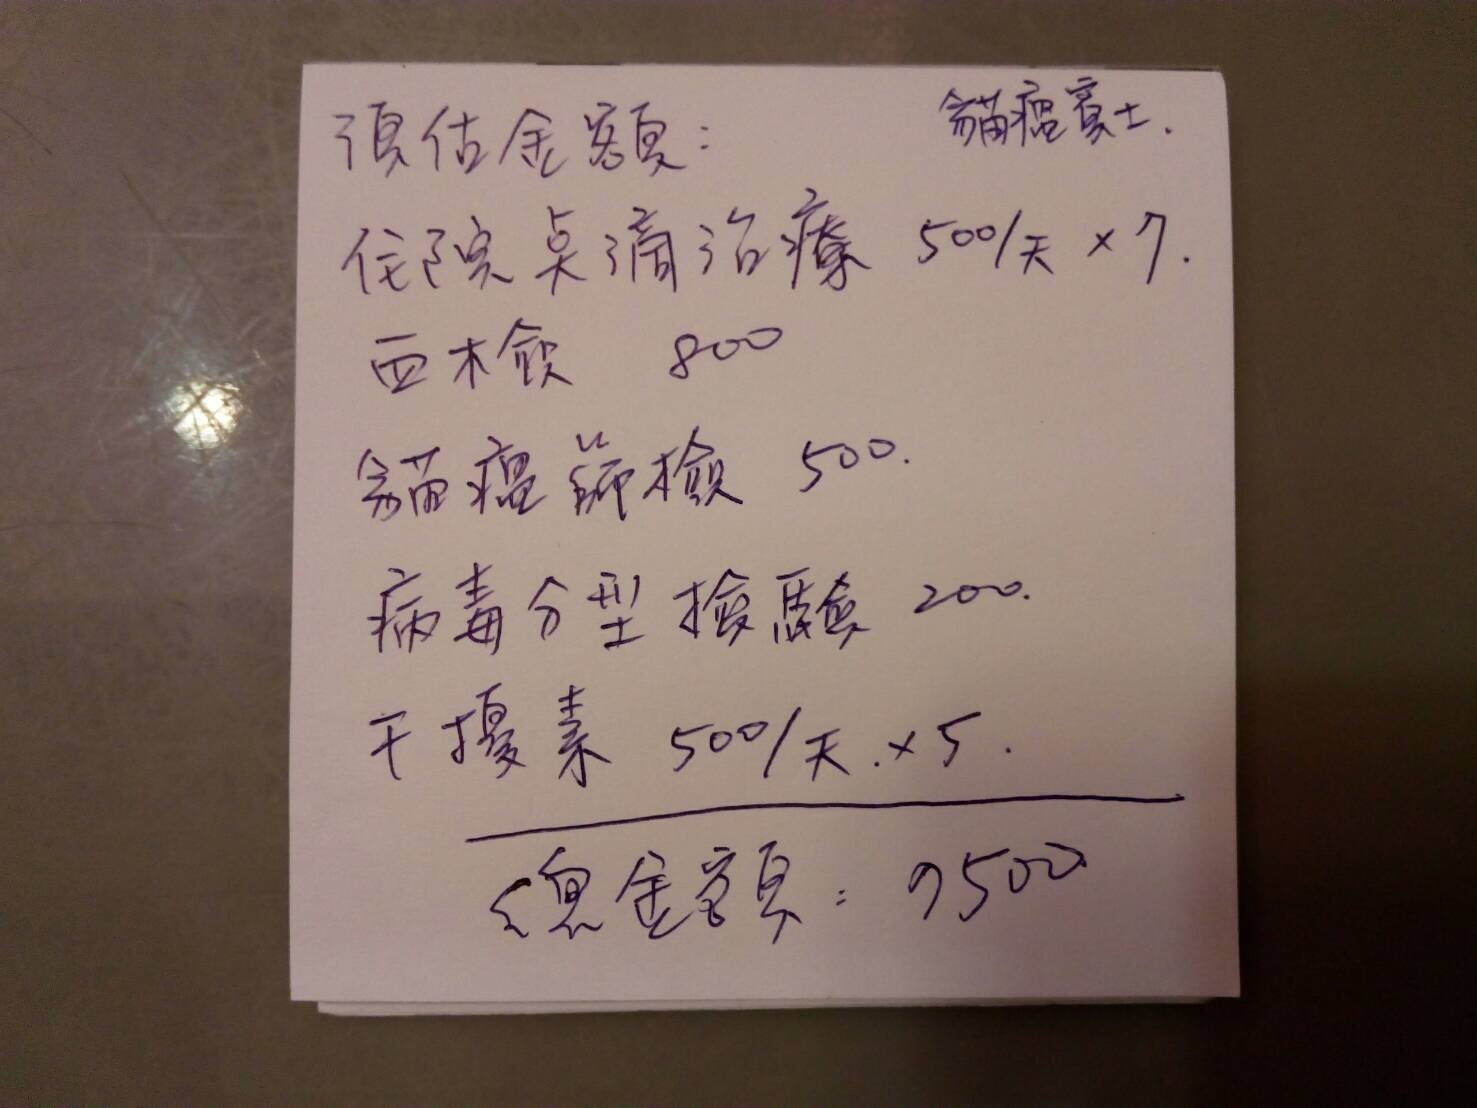 預估金額:
貓瘟賓士.
住院點滴治療 500/天 × 7.
血檢 800
貓瘟篩檢 500.
病毒分型檢驗 200.
干擾素 500/天. × 5.
總金額: 7500